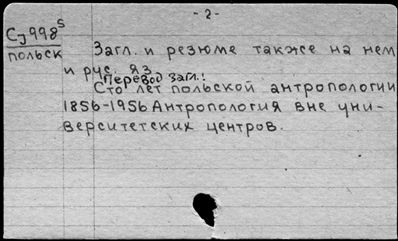 - 2 -
Cj998s
польск
Загл. и резюме также на нем
и рус. яз.
Перевод загл.:
Сто лет польской антропологии
1856-1956 Антропология вне уни-
верситетских центров.